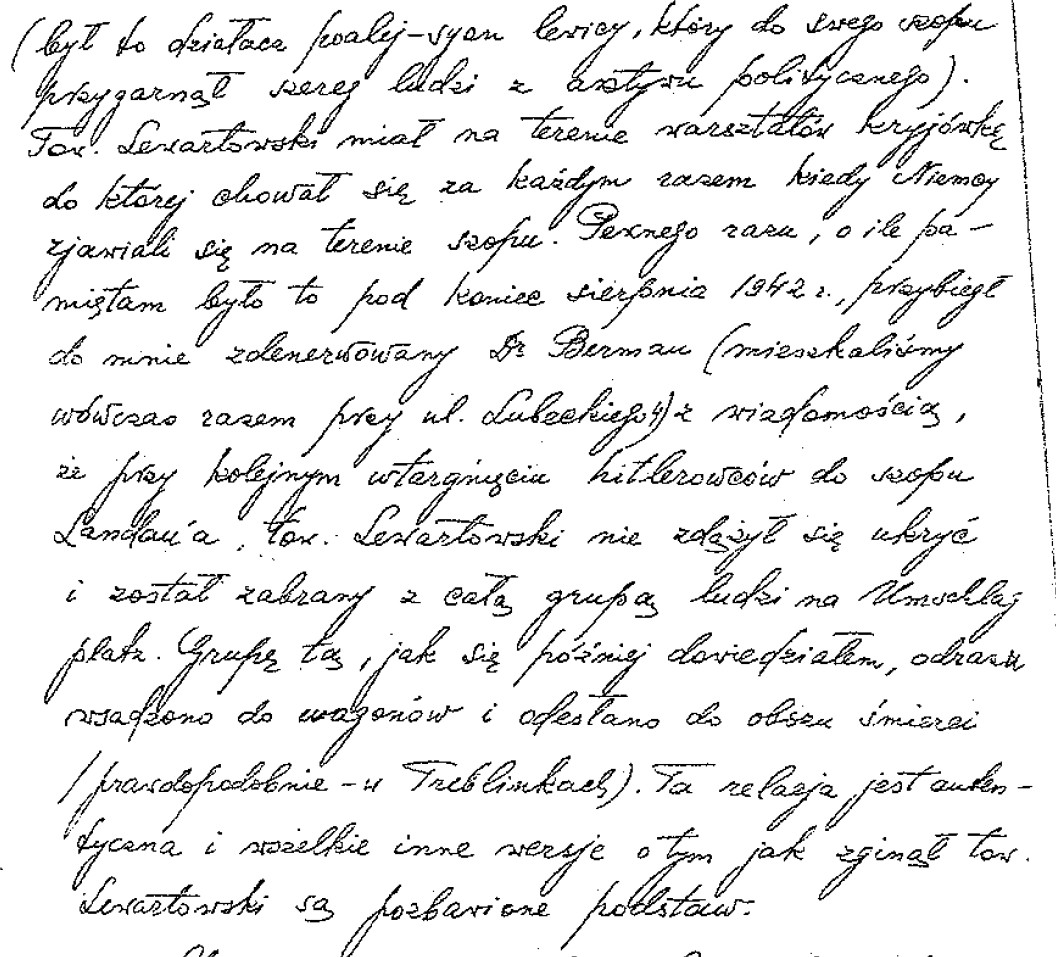 (był to działacz poalej-syon lewicy, który do swego szopu
przygarnął szereg ludzi z aktywu politycznego).
Tow. Lewartowski miał na terenie warsztatów kryjówkę
do której chował się za każdym razem kiedy Niemcy
zjawiali się na terenie szopu. Pewnego razu, o ile pa-
miętam było to pod koniec sierpnia 1942 r., przybiegł
do mnie zdenerwowany Dr Berman (mieszkaliśmy
wówczas razem przy ul. Lubeckiego 4) z wiadomością,
że przy kolejnym wtargnięciu hitlerowców do szopu
Landau'a, tow. Lewartowski nie zdążył się ukryć
i został zabrany z całą grupą ludzi na Umschlag
platz. Grupę tą, jak się później dowiedziałem, odrazu
wsadzono do wagonów i odesłano do obozu śmierci
/prawdopodobnie - w Treblinkach). Ta relacja jest auten-
tyczna i wszelkie inne wersje o tym jak zginął tow.
Lewartowski są pozbawione podstaw.